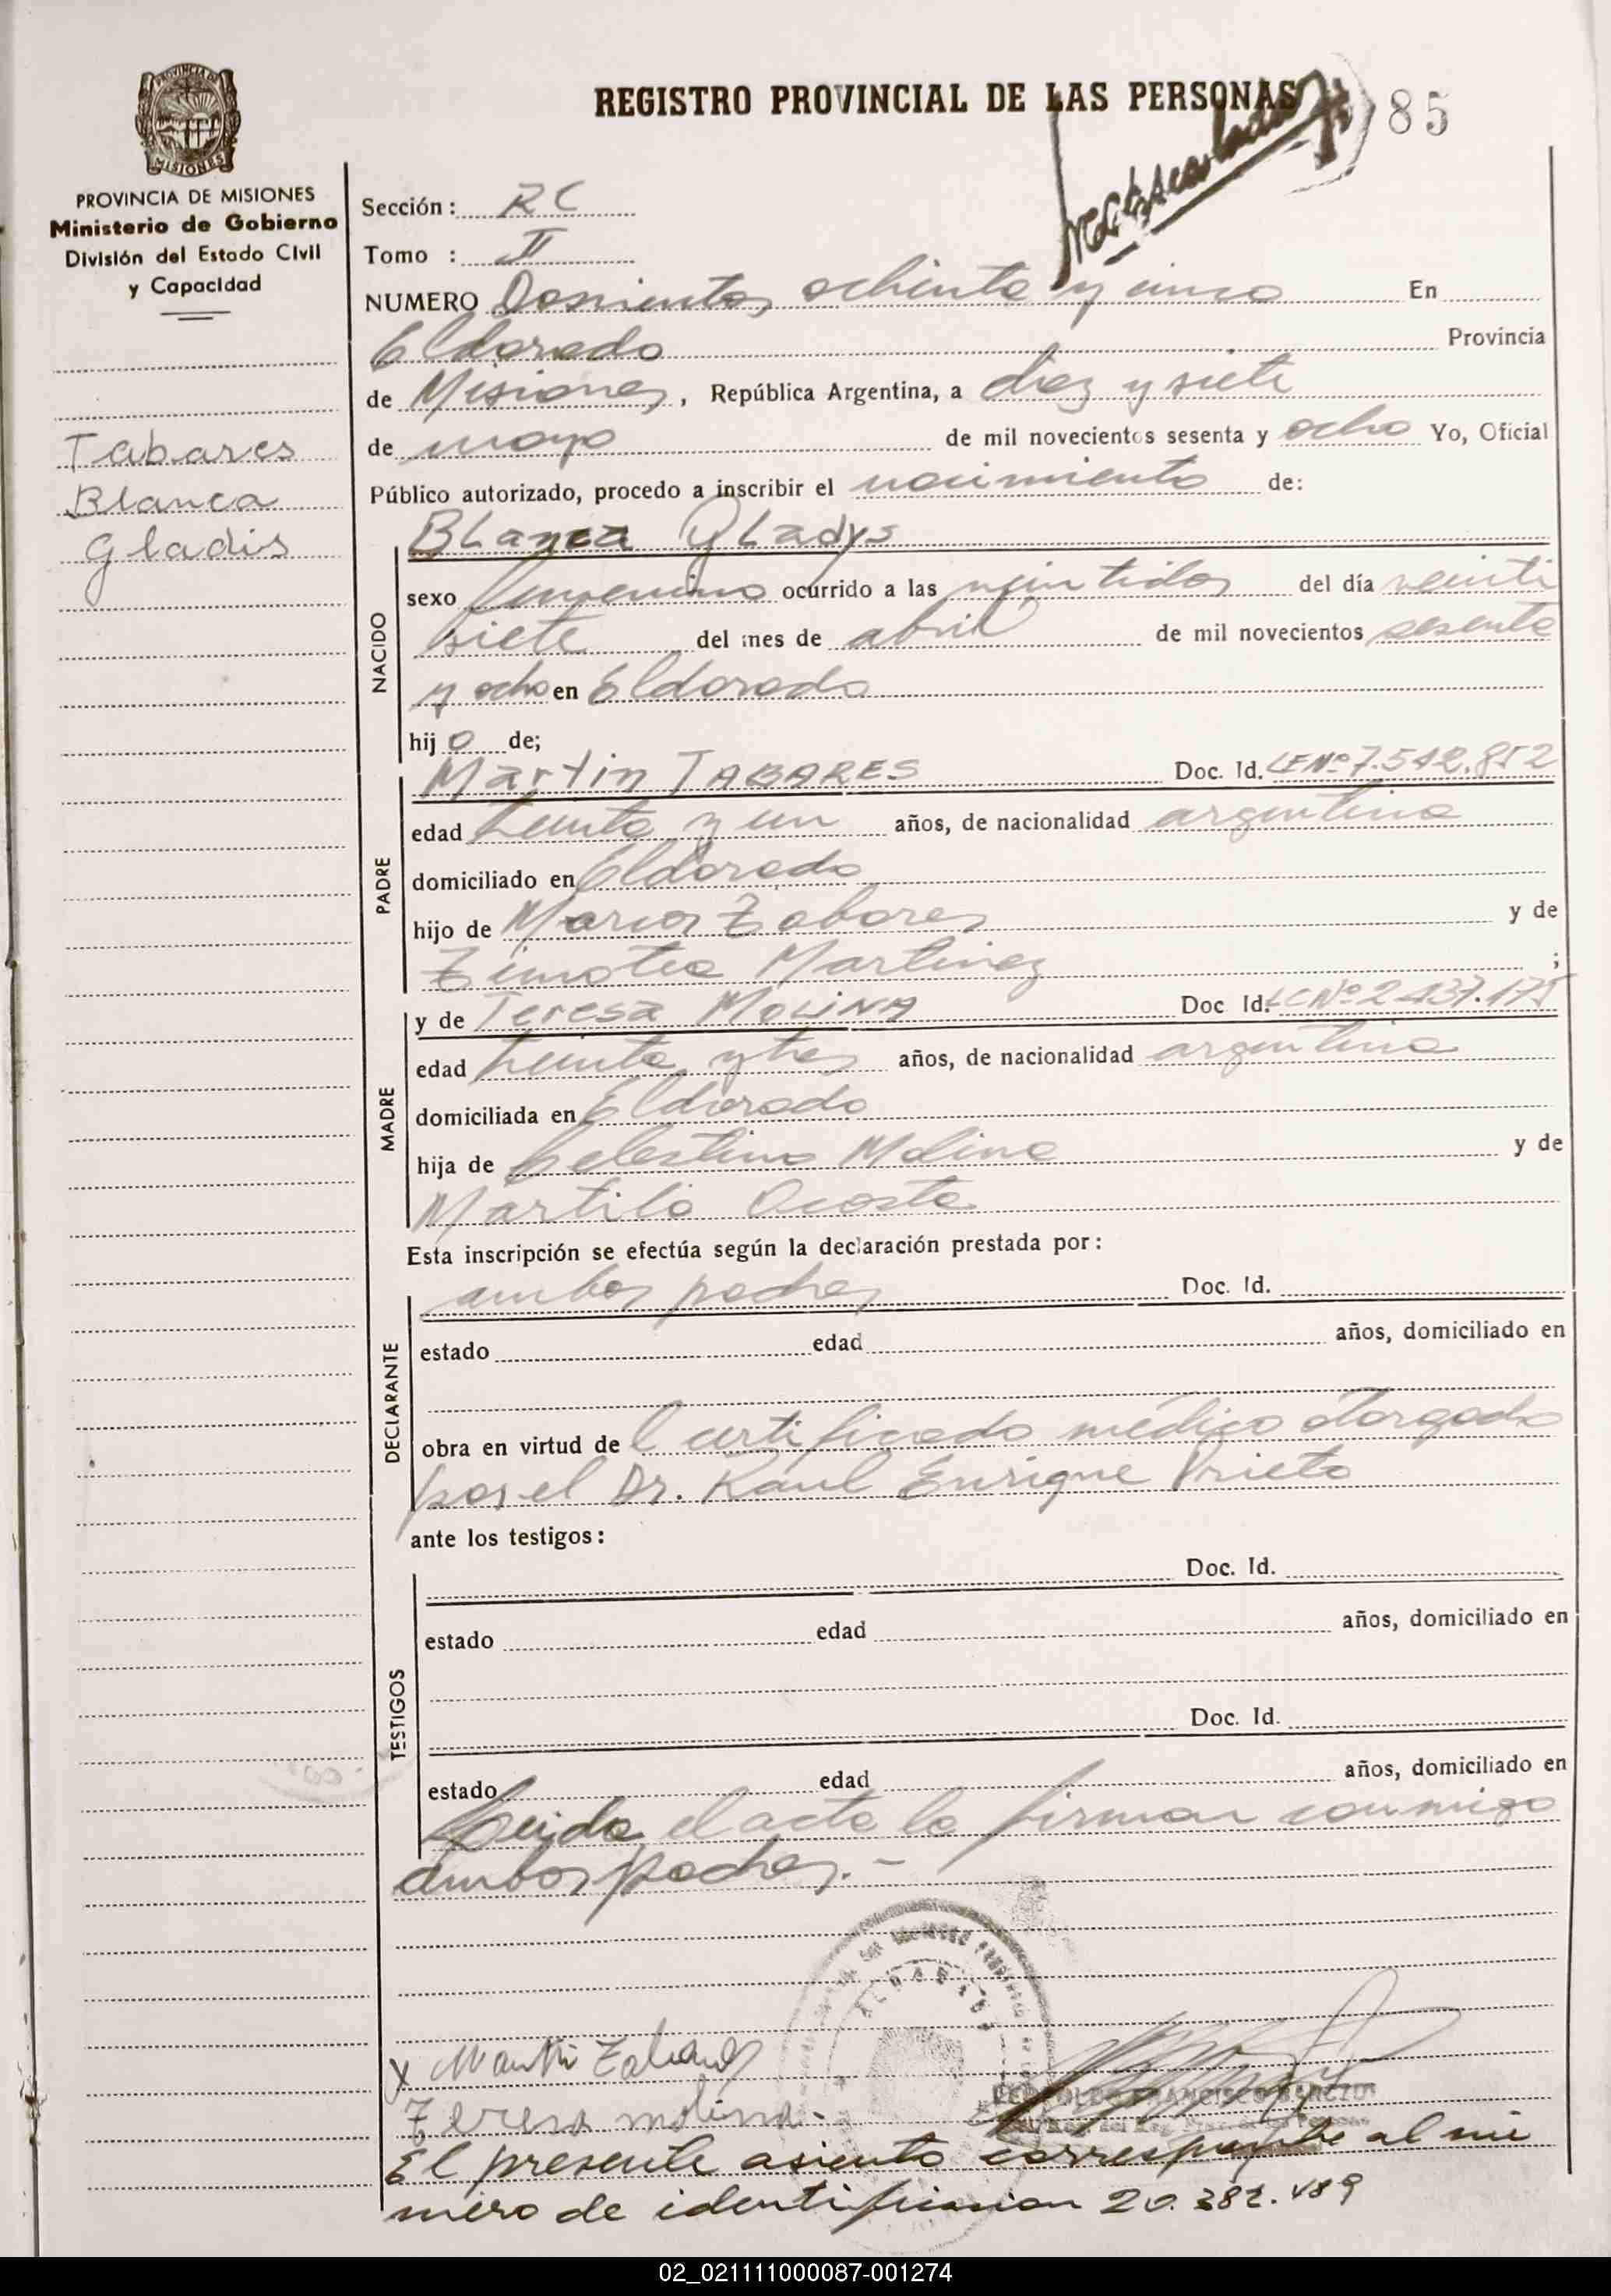 REGISTRO PROVINCIAL DE LAS PERSONAS
85
PROVINCIA DE
MISIONES
PROVINCIA DE MISIONES
Ministerio de Gobierno
División del Estado Civil
y Capacidad
Tabares
Blanca
Gladis
Sección: RC
Tomo : II
NUMERO Dosientos ochenta y cinco En
Eldorado Provincia
de Misiones, República Argentina, a diez y siete
de mayo de mil novecientos sesenta y ocho Yo, Oficial
Público autorizado, procedo a inscribir el nacimiento de:
Blanca Gladys
NACIDO
sexo femenino ocurrido a las veintidos del día veinti
siete del mes de abril de mil novecientos sesenta
y ocho en Eldorado
hijo de;
Martin TABARES Doc. Id. LE Nº 7.542.852
PADRE
edad treinta y un años, de nacionalidad argentina
domiciliado en Eldorado
hijo de Marcos Tabares y de
Timotea Martinez ;
y de Teresa MOLINA Doc Id. LC Nº 2.437.175
MADRE
edad treinta y tres años, de nacionalidad argentina
domiciliada en Eldorado
hija de Celestino Molina y de
Martila Acosta
Esta inscripción se efectúa según la declaración prestada por:
ambos padres Doc. Id.
DECLARANTE
estado edad años, domiciliado en
obra en virtud del certificado médico otorgado
por el Dr. Raul Enrique Prieto
ante los testigos:
TESTIGOS
Doc. Id.
estado edad años, domiciliado en
Doc. Id.
estado edad años, domiciliado en
Leida el acta la firman conmigo
ambos padres.-
ELDORADO
X Martin Tabares
Teresa molina.
El presente asiento corresponde al nu
mero de identificacion 20.382.489
02_021111000087-001274